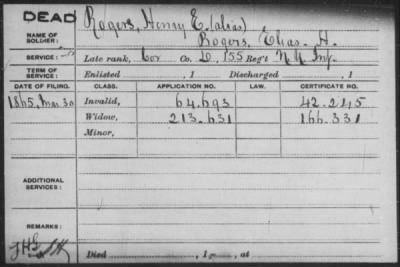 DEAD
NAME OF SOLDIER: Rogers, Henry E. (alias)
Rogers, Elias. H.
SERVICE: Late rank, Cor Co. D, 155 Reg't N.Y. Inf.
TERM OF SERVICE: Enlisted , 1 Discharged , 1
DATE OF FILING. CLASS. APPLICATION NO. LAW. CERTIFICATE NO.
1865, Mar 30 Invalid, 64.693 42.245
Widow, 213.631 166.331
Minor,
ADDITIONAL SERVICES:
REMARKS:
Died , 1 , at